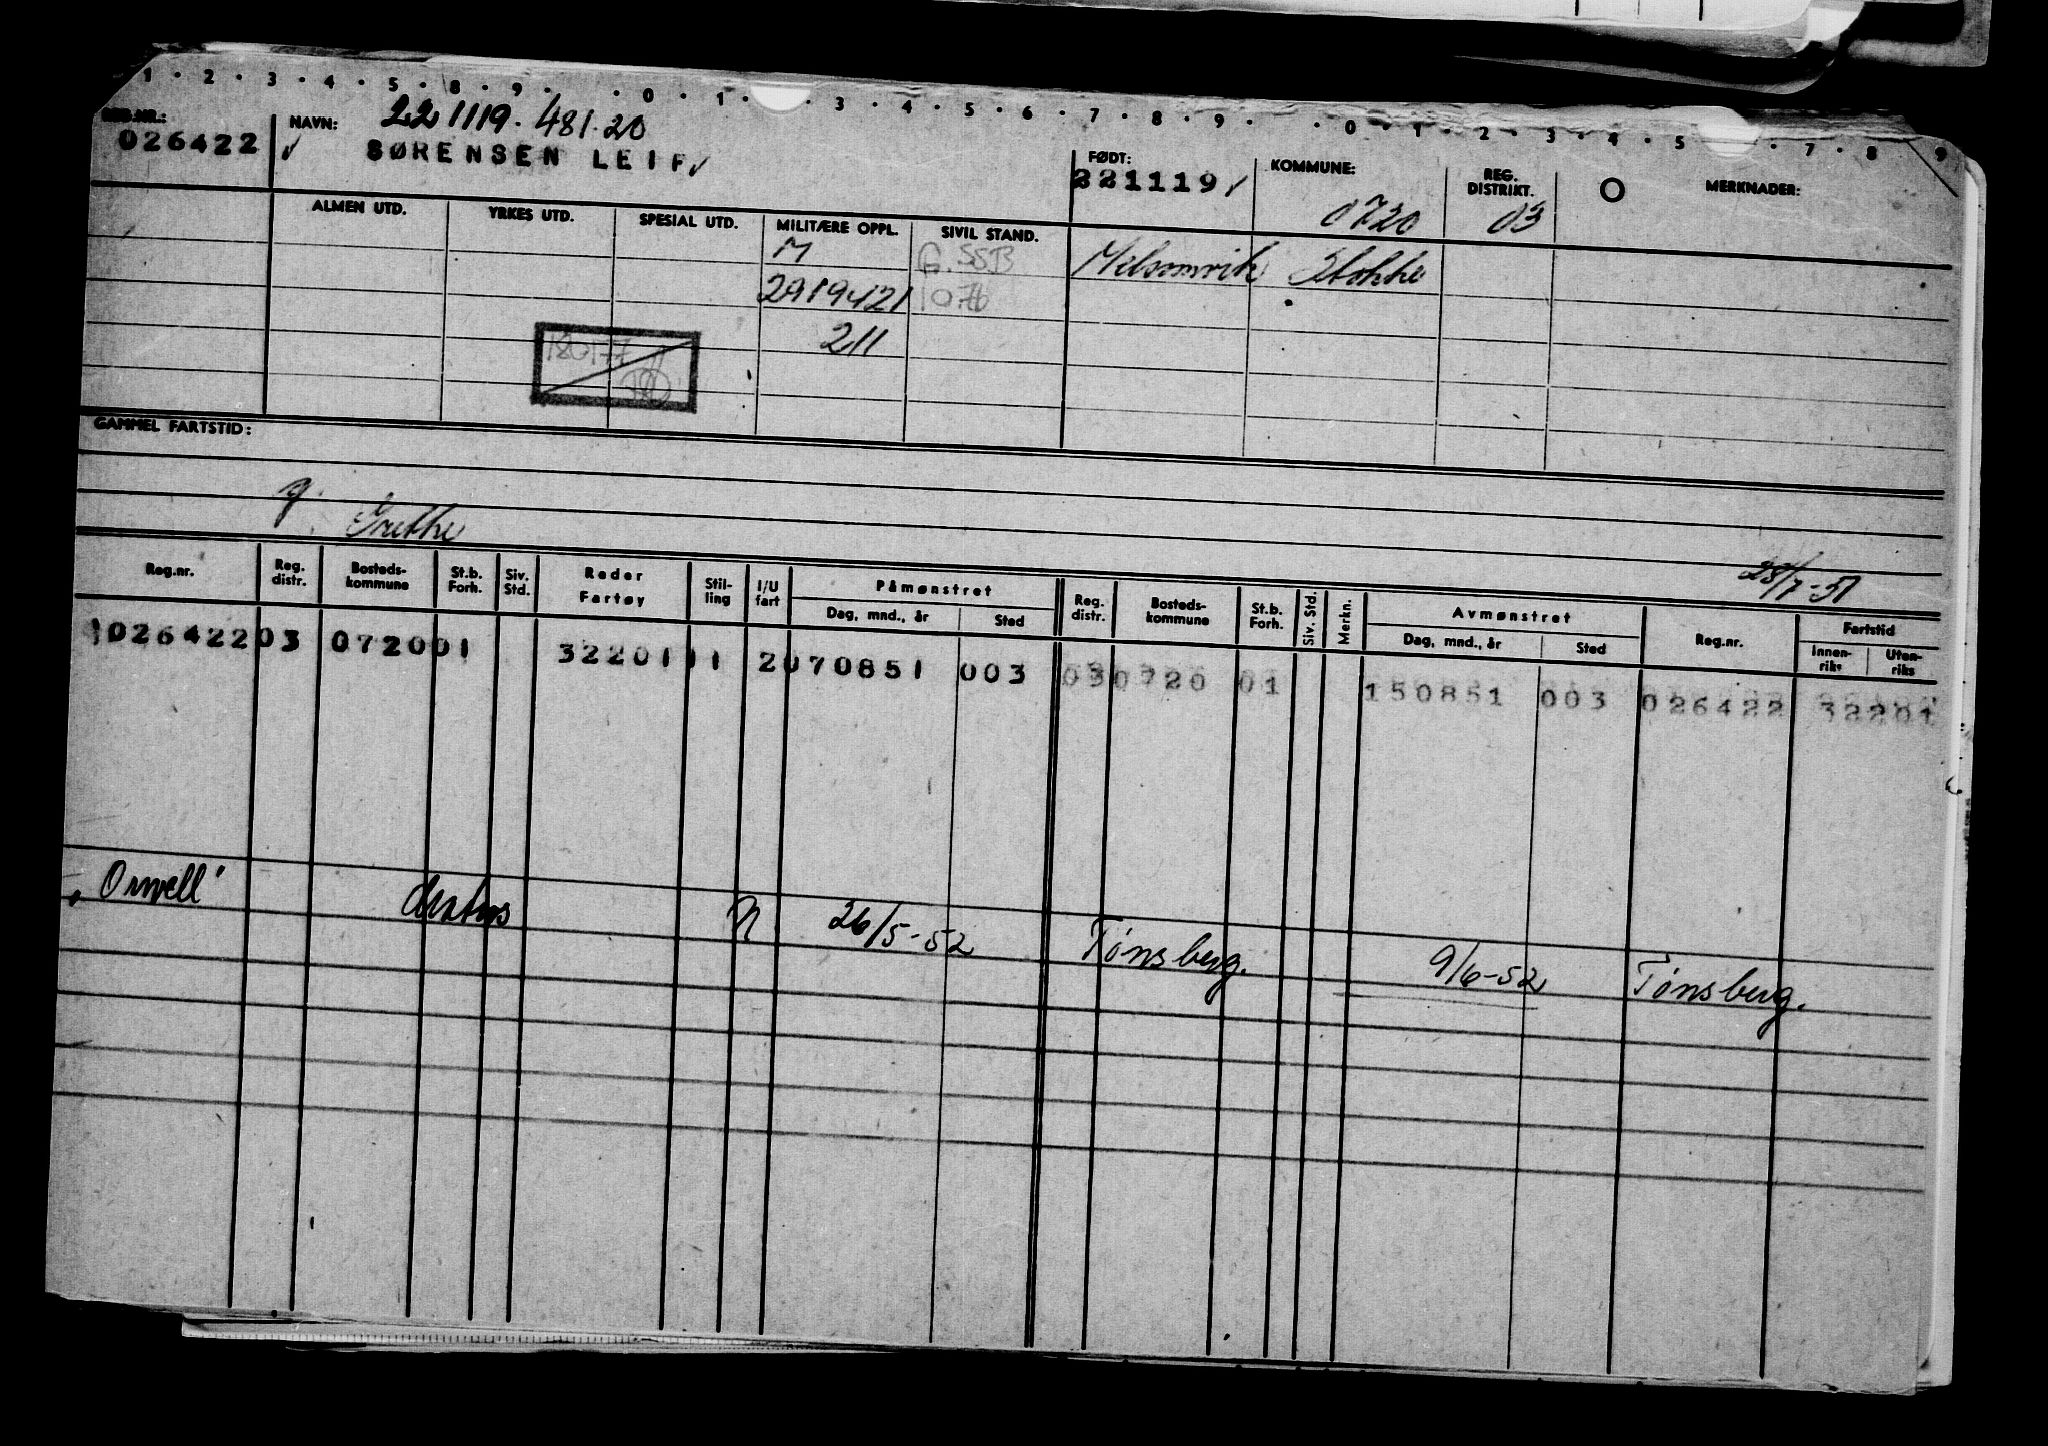 1 . 2 . 3 . 4 . 5 . 8 . 9 . . 0 . 1 . 3 . 4 . 5 . 6 . 7 . 8 . 9 . . 0 . 1 . 2 . 3 . 4 . 5 . 7 . 8 9
NAVN: 221119.48120
026422 SØRENSEN LEIF
FØDT: KOMMUNE: REG. DISTRIKT. MERKNADER:
221119 0720 03
ALMEN UTD. YRKES UTD. SPESIAL UTD. MILITÆRE OPPL. SIVIL STAND.
M G. SSB Melsomvik Stokke
2919421 1076
211
180177
GAMMEL FARTSTID:
g. Grethe
28/7-51
Reg.nr. Reg. distr. Bosteds-kommune St.b. Forh. Siv. Std. Reder Fartøy Stil-ling I/U fart Påmønstret Dag, mnd., år Sted Reg. distr. Bosteds-kommune St.b. Forh. Siv. Std. Merkn. Avmønstret Dag, mnd., år Sted Reg.nr. Fartstid Innen-riks Uten-riks
102642203 072001 3220111 2070851 003 030720 01 150851 003 026422 32201
"Orwell" 26/5-52 Tønsberg. 9/6-52 Tønsberg.